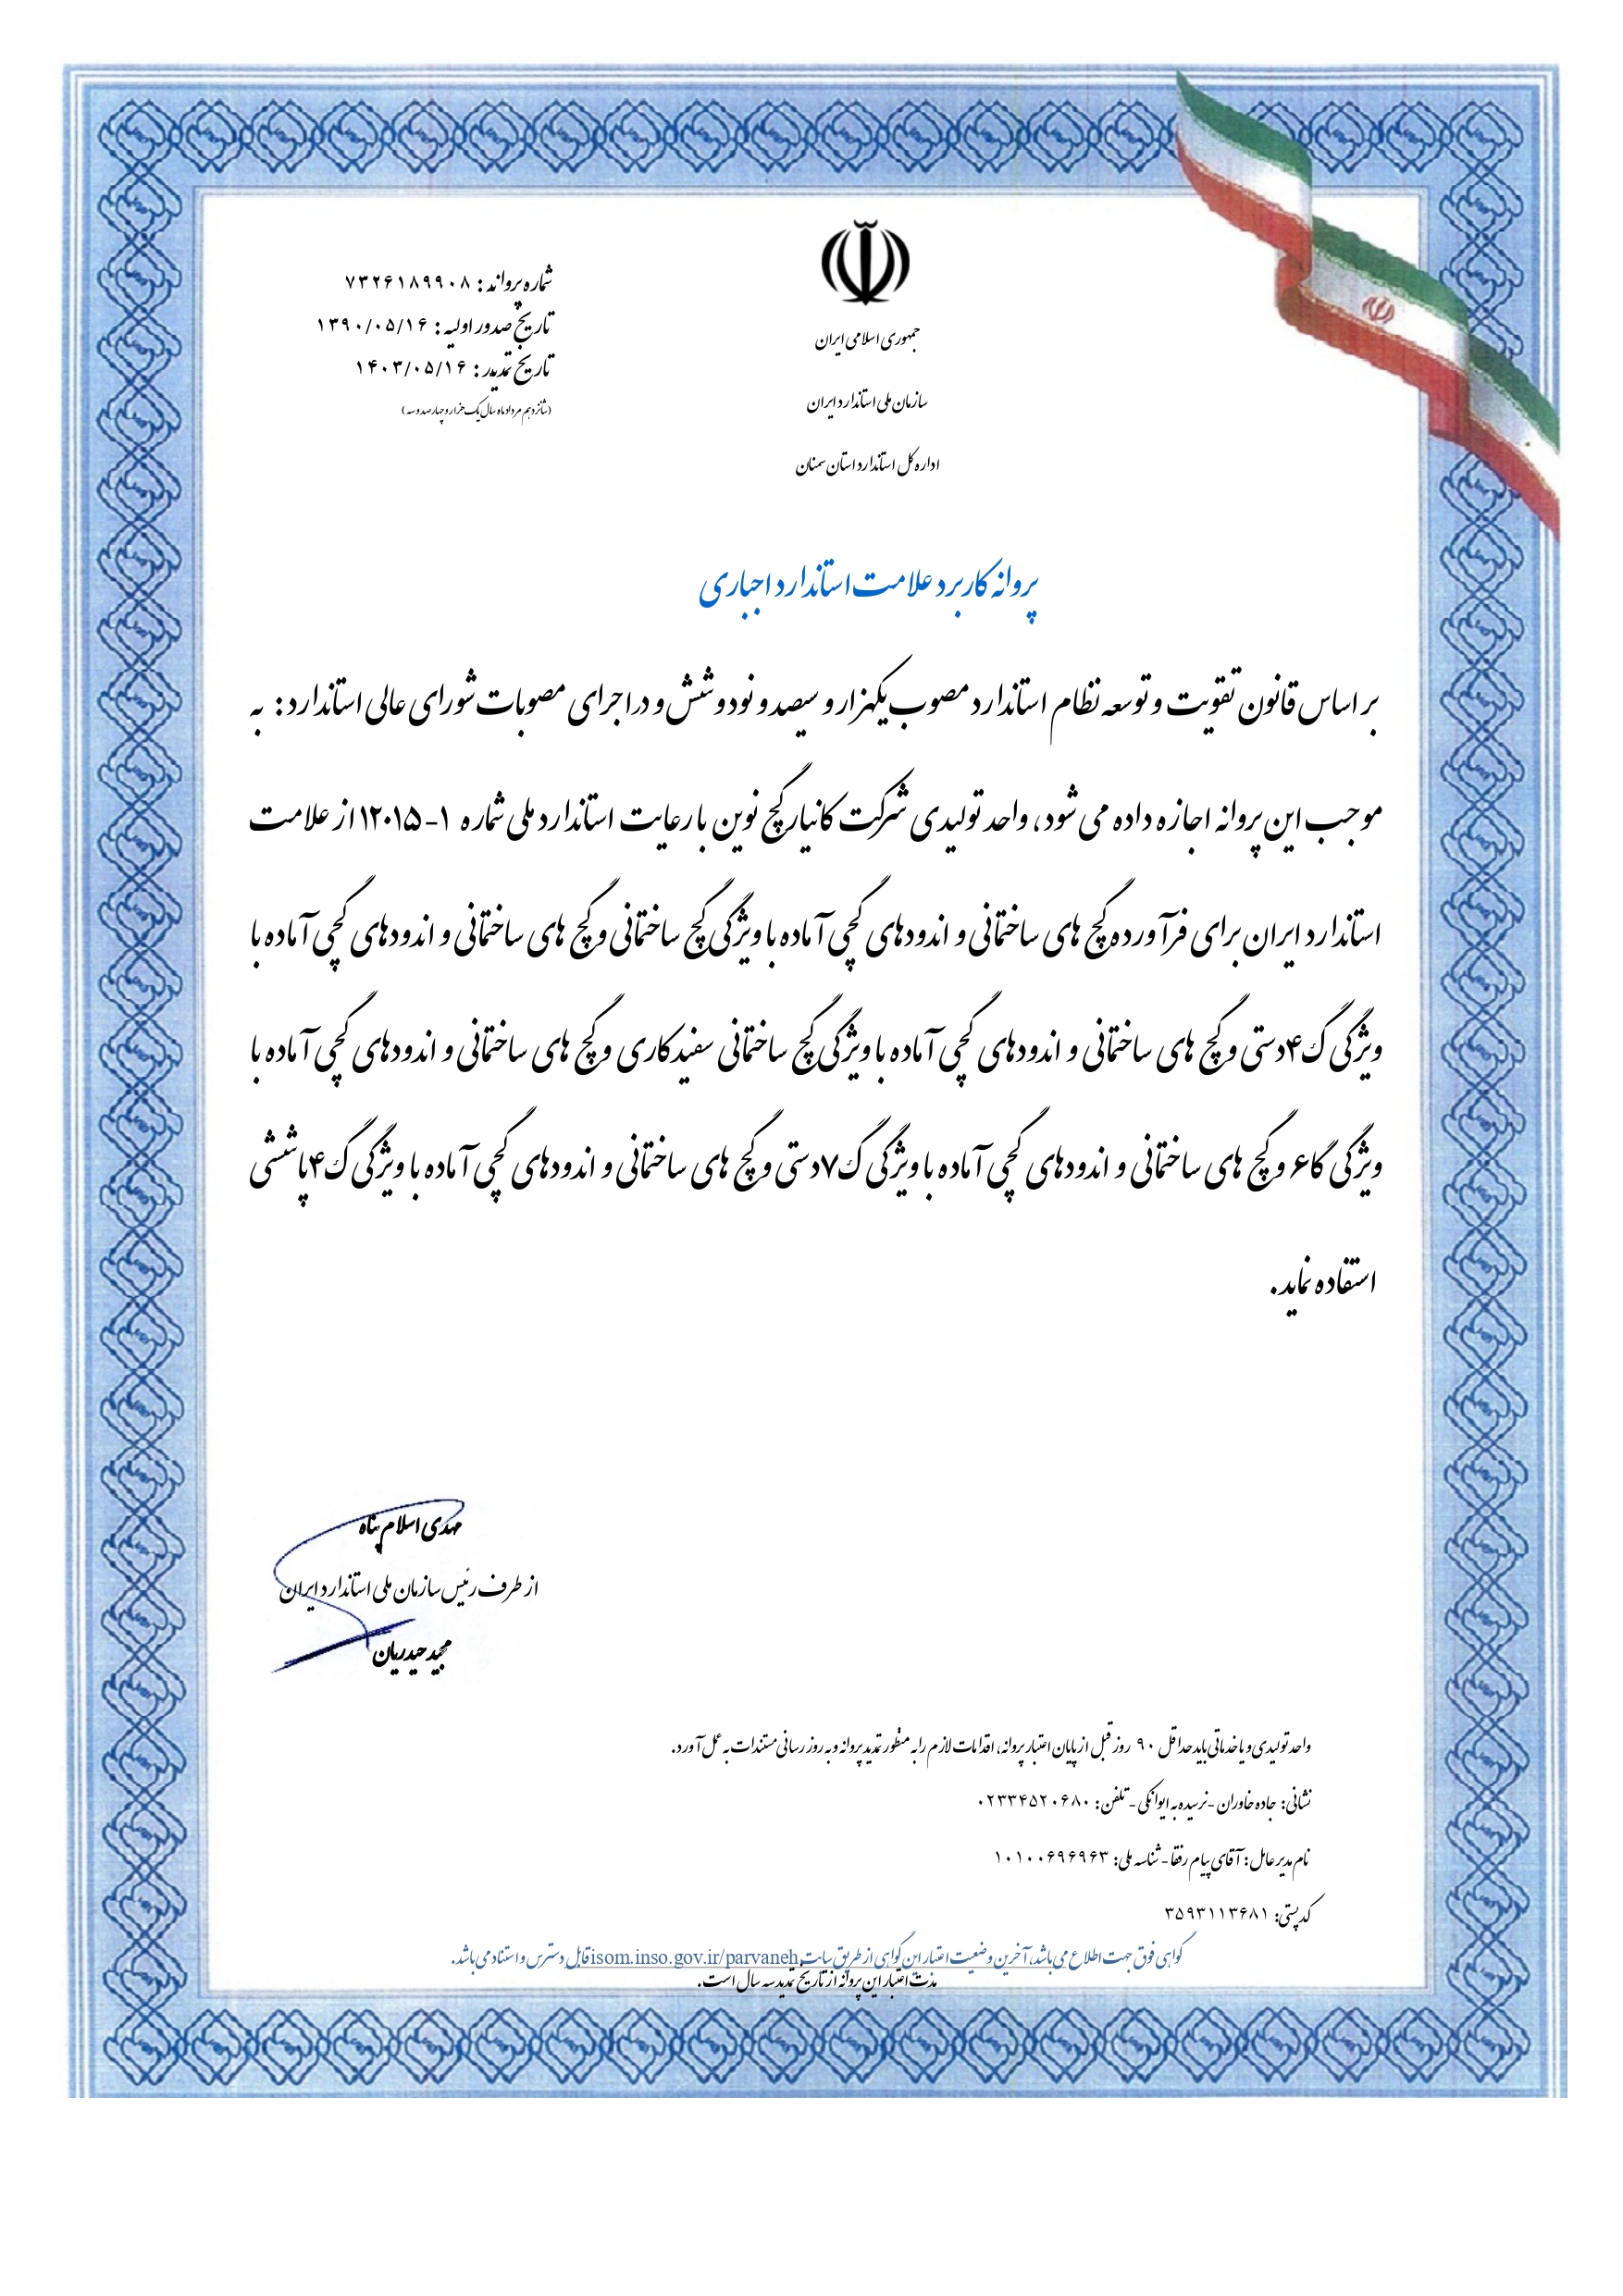 جمهوری اسلامی ایران
سازمان ملی استاندارد ایران
اداره کل استاندارد استان سمنان
شماره پروانه : ۷۳۲۶۱۸۹۹۰۸
تاریخ صدور اولیه : ۱۳۹۰/۰۵/۱۶
تاریخ تمدید : ۱۴۰۳/۰۵/۱۶
(شانزدهم مرداد ماه سال یک هزار و چهارصد و سه)
پروانه کاربرد علامت استاندارد اجباری
بر اساس قانون تقویت و توسعه نظام استاندارد مصوب یکهزار و سیصد و نود و شش و در اجرای مصوبات شورای عالی استاندارد : به
موجب این پروانه اجازه داده می شود، واحد تولیدی شرکت کانیار گچ نوین با رعایت استاندارد ملی شماره ۱-۱۲۰۱۵ از علامت
استاندارد ایران برای فرآورده گچ های ساختمانی و اندودهای گچی آماده با ویژگی گچ ساختمانی و گچ های ساختمانی و اندودهای گچی آماده با
ویژگی گ۴دستی و گچ های ساختمانی و اندودهای گچی آماده با ویژگی گچ ساختمانی سفیدکاری و گچ های ساختمانی و اندودهای گچی آماده با
ویژگی گا۶ و گچ های ساختمانی و اندودهای گچی آماده با ویژگی گ۷دستی و گچ های ساختمانی و اندودهای گچی آماده با ویژگی گ۴پاششی
استفاده نماید .
مهدی اسلام پناه
از طرف رئیس سازمان ملی استاندارد ایران
مجید حیدریان
واحد تولیدی و یا خدماتی باید حداقل ۹۰ روز قبل از پایان اعتبار پروانه، اقدامات لازم را به منظور تمدید پروانه و به روز رسانی مستندات به عمل آورد.
نشانی: جاده خاوران -نرسیده به ایوانکی - تلفن: ۰۲۳۳۴۵۲۰۶۸۰
نام مدیر عامل: آقای پیام رفقا - شناسه ملی: ۱۰۱۰۰۶۹۶۹۶۳
کد پستی: ۳۵۹۳۱۱۳۶۸۱
گواهی فوق جهت اطلاع می باشد، آخرین وضعیت اعتبار این گواهی از طریق سایت isom.inso.gov.ir/parvaneh قابل دسترس و استناد می باشد.
مدت اعتبار این پروانه از تاریخ تمدید سه سال است.